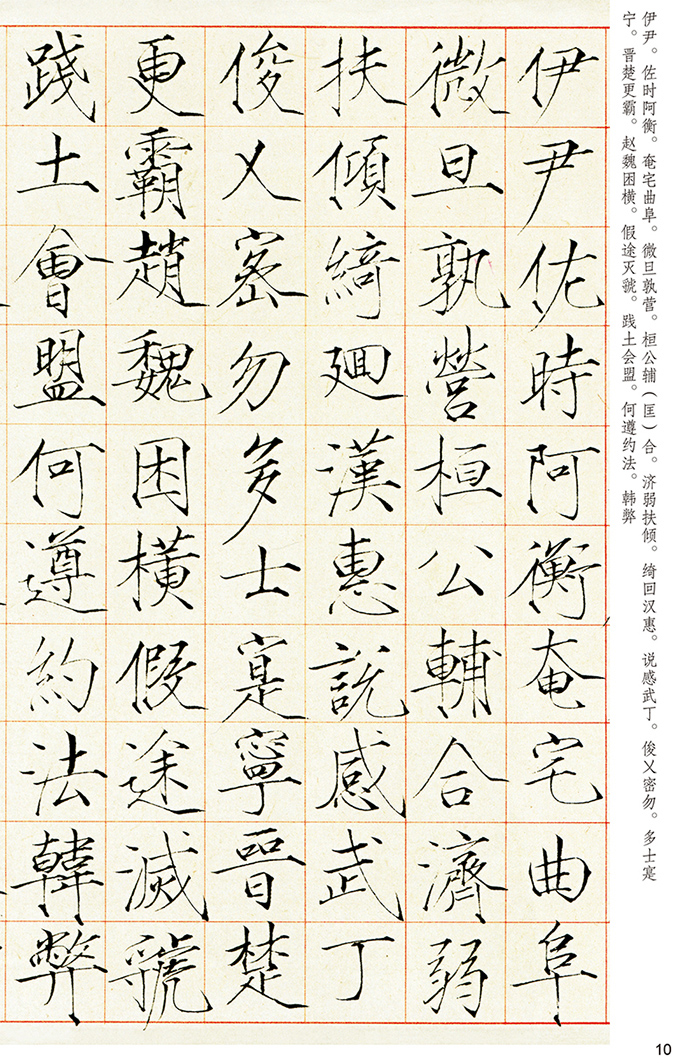 伊尹。佐时阿衡。奄宅曲阜。微旦孰营。桓公辅（匡）合。济弱扶倾。绮回汉惠。说感武丁。俊乂密勿。多士寔
宁。晋楚更霸。赵魏困横。假途灭虢。践土会盟。何遵约法。韩弊
伊尹佐時阿衡奄宅曲阜
微旦孰營桓公輔合濟弱
扶傾綺迴漢惠説感武丁
俊乂密勿多士寔寧晉楚
更霸趙魏困橫假途滅虢
踐土會盟何遵約法韓弊
10